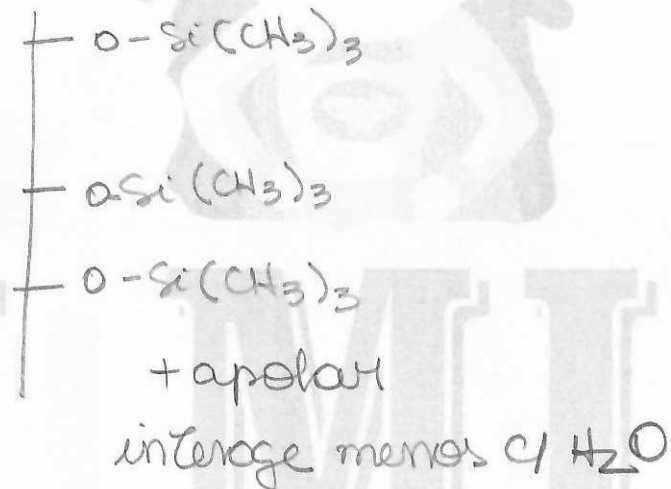 O-Si(CH3)3
O-Si(CH3)3
O-Si(CH3)3
+ apolar
interage menos c/ H2O